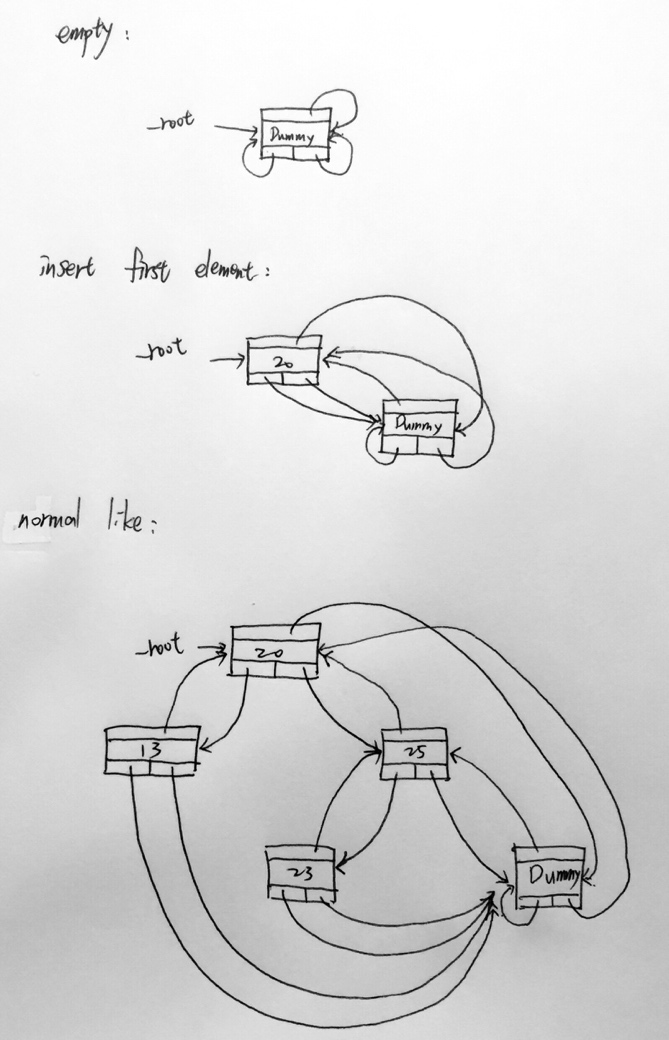 empty:
_root
Dummy
insert first element:
_root
20
Dummy
normal like:
_root
20
13
25
23
Dummy